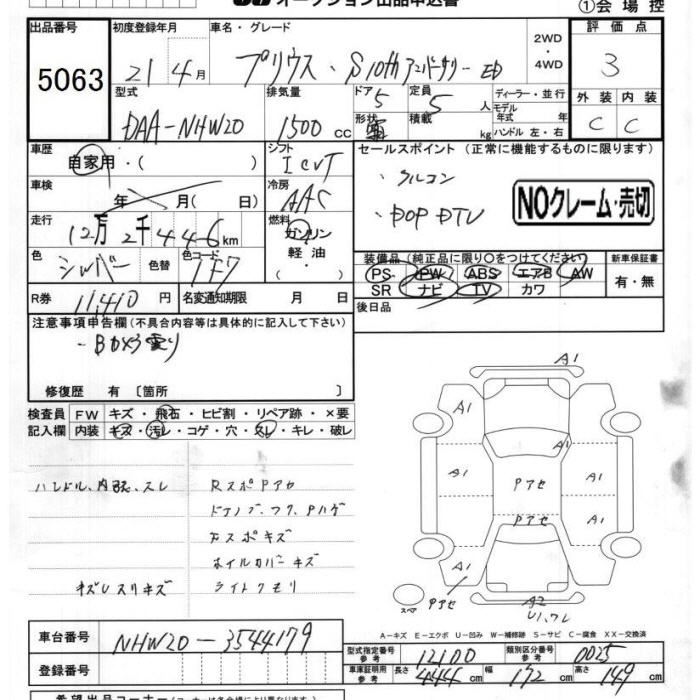 オークション出品申込書 ①会場控
出品番号 初度登録年月 車名・グレード 2WD ・4WD 評価点
5063 21 4月 プリウス・S10thアンバーサリーED 3
型式 排気量 ドア 定員 ディーラー・並行 外装 内装
DAA-NHW20 1500cc 5 5人 モデル年式 年 C C
形状 積載 kg ハンドル 左・右
車歴 シフト セールスポイント (正常に機能するものに限ります)
自家用・( ) I CVT ・クルコン
車検 年 月( 日) 冷房 AAC ・POP DTV NOクレーム・売切
走行 12万2千446km 燃料 ガソリン 軽油・( )
色 シルバー 色替 色コード 1F7
装備品(純正品に限り○をつけてください) 新車保証書
PS PW ABS エアB AW 有・無
SR ナビ TV カワ
R券 11,410円 名変通知期限 月 日 後日品
注意事項申告欄(不具合内容等は具体的に記入して下さい)
修復歴 有 [箇所 ]
検査員 FW キズ・飛石・ヒビ割・リペア跡・×要
記入欄 内装 キズ・汚レ・コゲ・穴・スレ・キレ・破レ
ハンドル、内張、スレ RスポPアセ
ドアノブ、フク、Pハゲ
スポキズ
ホイルカバーキズ
キズUスリキズ ライトクモリ
A1
A1 A1
A1 Pアセ A1
Pアセ A1
A1
スペア Pアセ A2
U1、ワレ
A-キズ E-エクボ U-凹み W-補修跡 S-サビ C-腐食 XX-交換済
車台番号 NHW20-3544179 型式指定番号 参考 12100 類別区分番号 参考 0025
登録番号 車庫証明用 参考 長さ 444cm 幅 172cm 高さ 149cm
希望出品コーナー